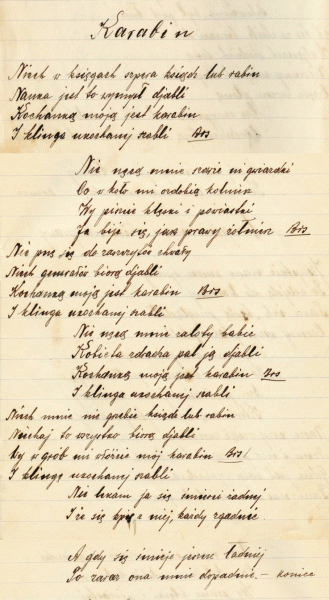 Karabin
Niech w księgach szpera ksiądz lub rabin
Nauka jest to wymysł djabli
Kochanką moją jest karabin
I klinga ukochanej szabli Bis
Nie nęcą mnie szarże ni gwiazdki
Co w koło mi ozdobią kołnierz
Wy piszcie klechdy i powiastki
Ja biję się, jak prawy żołnierz Bis
Nie pnę się do zaszczytów chwały
Niech generałów biorą djabli
Kochanką moją jest karabin Bis
I klinga ukochanej szabli
Nie nęcą mnie zaloty babie
Kobieta zdradna pal ją djabli
Kochanką moją jest karabin Bis
I klinga ukochanej szabli
Niech mnie nie grzebie ksiądz lub rabin
Niechaj to wszystko biorą djabli
Wy w grób mi włóżcie mój karabin Bis
I klingę ukochanej szabli
Nie lękam ja się śmierci żadnej
I że się kpię z niej, każdy zgadnie
A gdy się śmieję jeszcze ładniej
To zaraz ona mnie dopadnie. – koniec